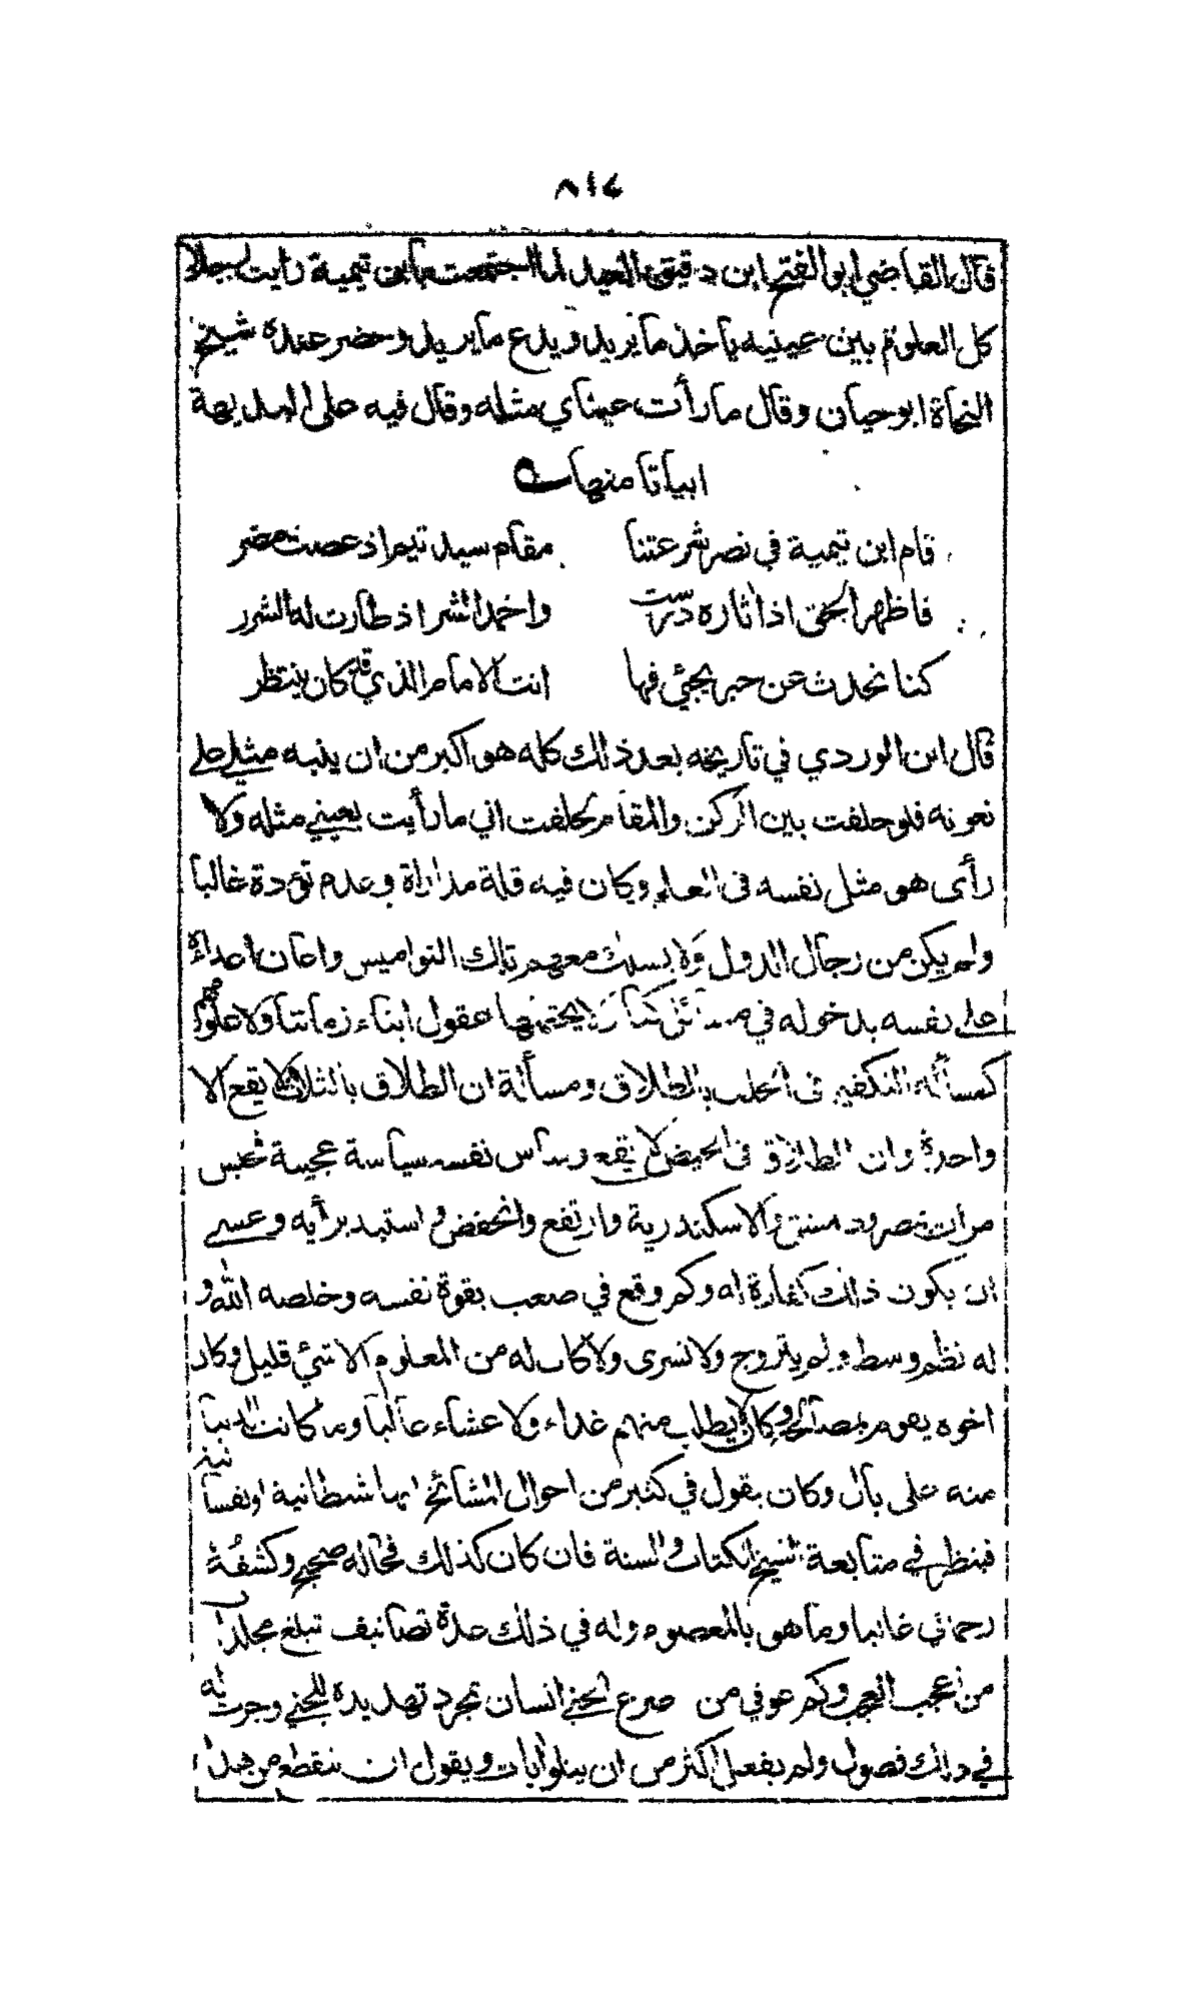 ٨١٤
قال القاضي ابو الفتح ابن دقيق العيد لما اجتمعت بابن تيمية رايت رجلا
كل العلوم بين عينيه ياخذ ما يريد ويدع ما يريد وحضر عنده شيخ
النحاة ابو حيان وقال ما رأت عيناي مثله وقال فيه على البديهة
ابياتا منها
قام ابن تيمية في نصر شرعتنا مقام سيد تيم اذ عصت مضر
فاظهر الحق اذ اثاره درست واخمد الشر اذ طارت له الشرر
كنا نحدث عن حبر يجئ فها انت الامام الذي قد كان ينتظر
قال ابن الوردي في تاريخه بعد ذلك كله هو اكبر من ان ينبه مثلي على
نعوته فلو حلفت بين الركن والمقام لحلفت اني ما رأيت بعيني مثله ولا
رأى هو مثل نفسه في العلم وكان فيه قلة مداراة وعدم تؤدة غالبا
ولم يكن من رجال الدول ولا يسلك معهم تلك النواميس واعان اعداءه
على نفسه بدخوله في مسائل كبار لا يحتملها عقول ابناء زماننا ولا علومهم
كمسألة التكفير في الحلف بالطلاق ومسألة ان الطلاق بالثلاث لا يقع الا
واحدة وان الطلاق في الحيض لا يقع وساس نفسه سياسة عجيبة فحبس
مرات بمصر ودمشق والاسكندرية وارتفع وانخفض و استبد برأيه وعسى
ان يكون ذلك كفارة له وكم وقع في صعب بقوة نفسه وخلصه الله و
له نظم وسط ولم يتزوج ولا تسرى ولا كان له من المعلوم الا شئ قليل وكان
اخوه يقوم بمصالحه وكان لا يطلب منهم غداء ولا عشاء غالبا وما كانت الدنيا
منه على بال وكان يقول في كثير من احوال المشائخ انها شيطانية او نفسانية
فينظر في متابعة الشيخ الكتاب والسنة فان كان كذلك فحاله صحيح وكشفه
رحماني غالبا وما هو بالمعصوم وله في ذلك عدة تصانيف تبلغ مجلدات
من اعجب العجب وكم عوفي من صرع الجني انسان بمجرد تهديده للجني وجرت له
في ذلك فصول ولم يفعل اكثر من ان يتلو ايات ويقول ان تنقطع من هذا